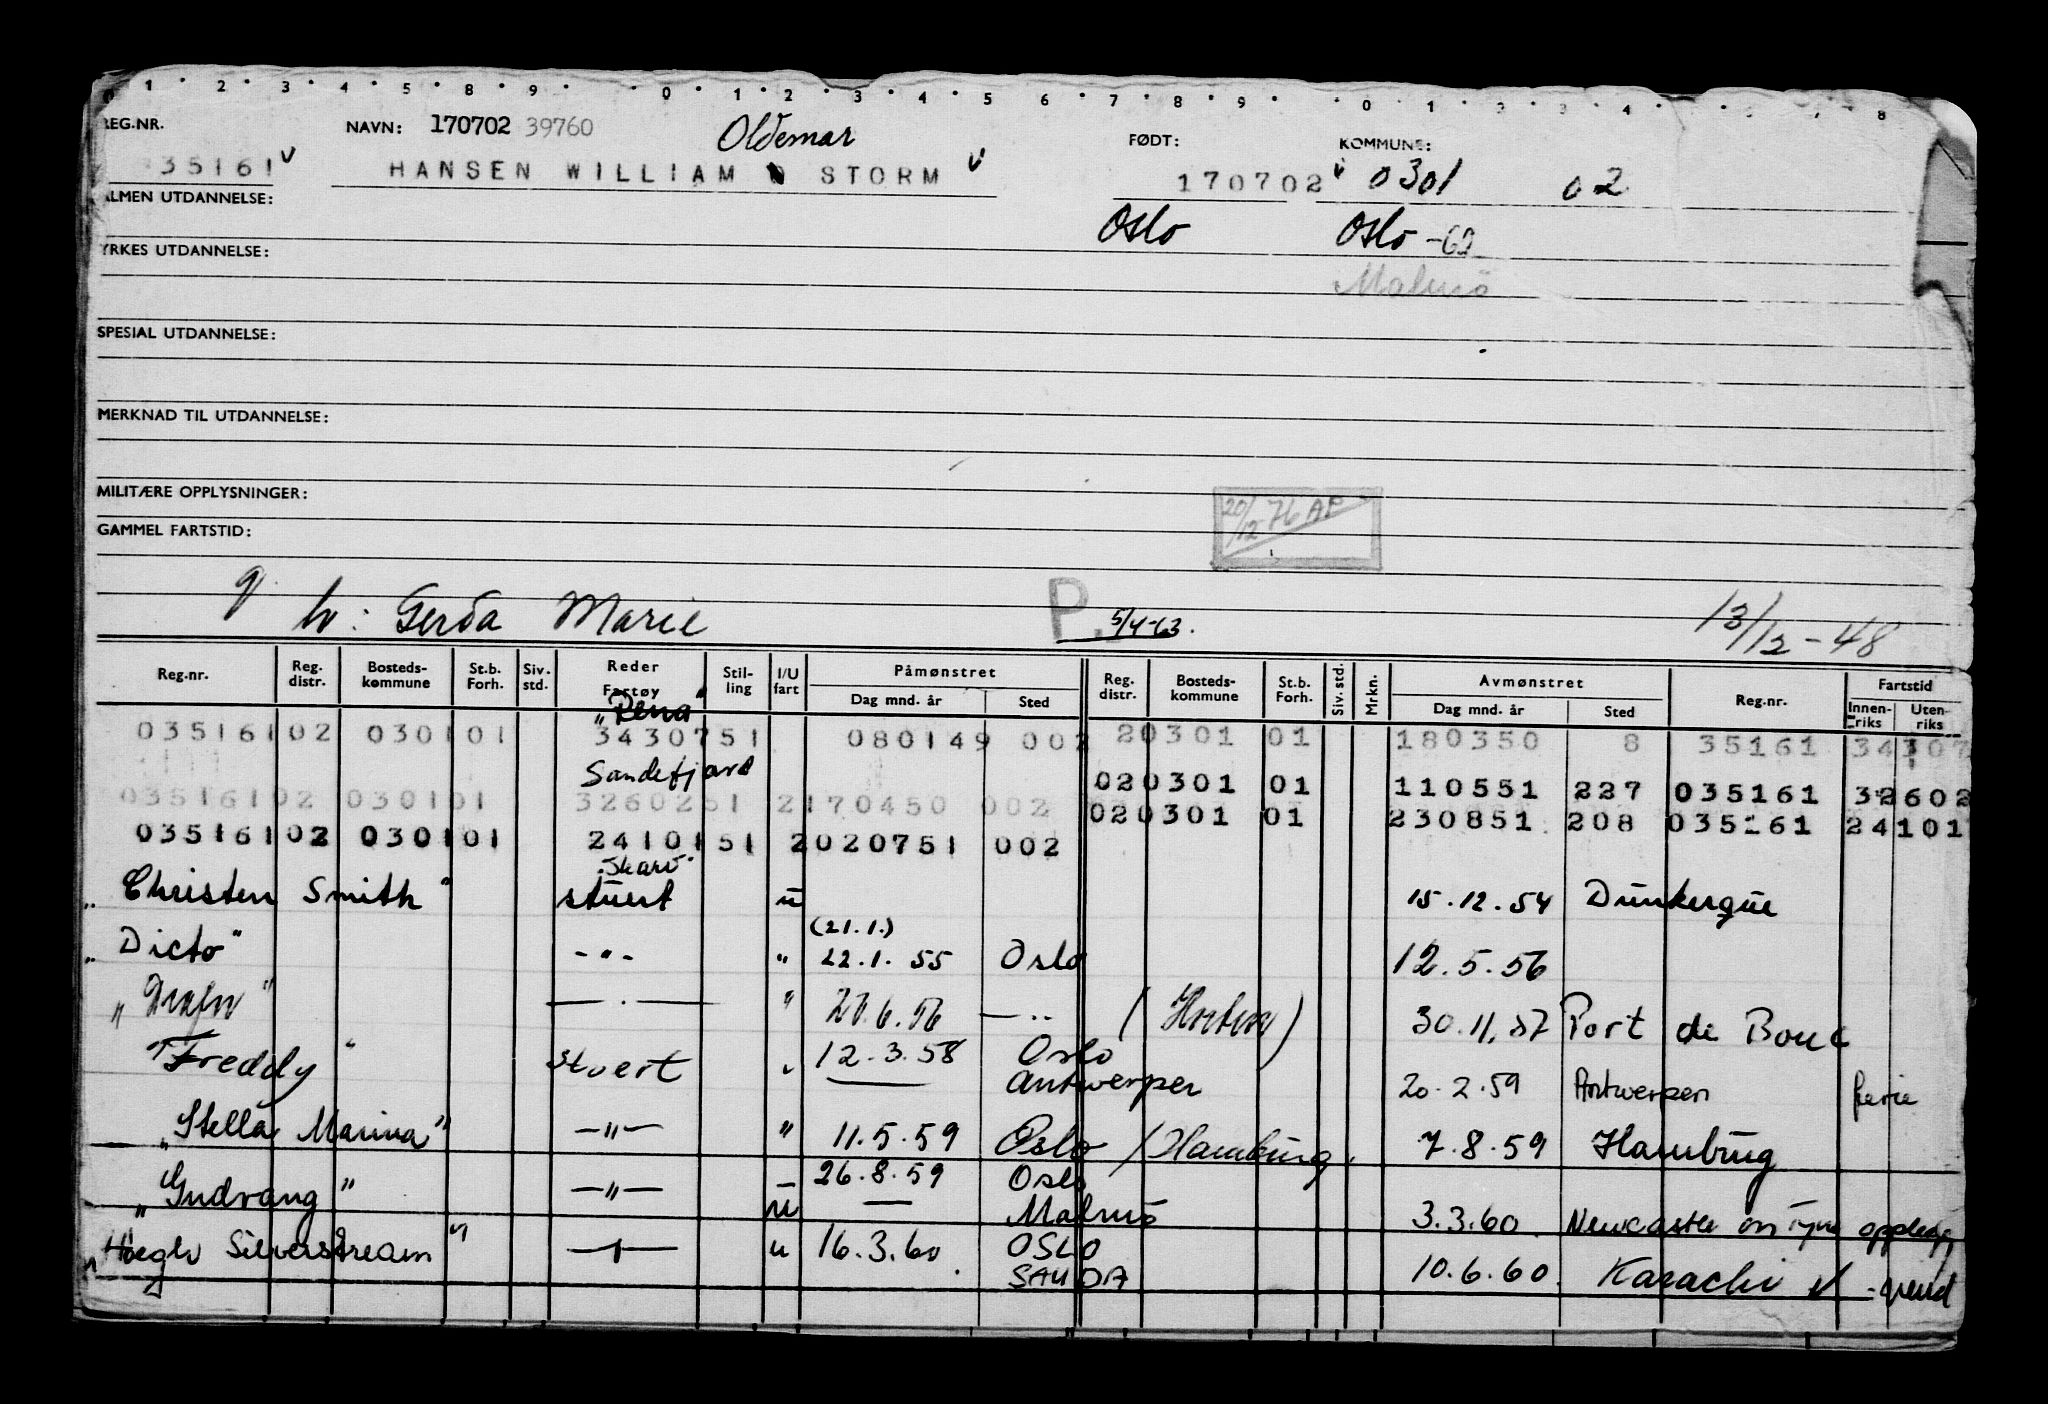 1 2 3 4 5 8 9 0 1 2 3 4 5 6 7 8 9 0 1 2 3 4 5 7 8
REG.NR. NAVN: 170702 39760 Oldemar FØDT: KOMMUNE:
35161 HANSEN WILLIAM STORM 170702 0301 02
ALMEN UTDANNELSE: Oslo Oslo -62
YRKES UTDANNELSE: Malmö
SPESIAL UTDANNELSE:
MERKNAD TIL UTDANNELSE:
MILITÆRE OPPLYSNINGER: 20/12 76 AF
GAMMEL FARTSTID:
g h: Gerda Marie P. 5/4-63. 13/12-48
Reg.nr. Reg. distr. Bosteds- kommune St.b. Forh. Siv. std. Reder Fartøy Stil- ling I/U fart Påmønstret Dag mnd. år Sted Reg. distr. Bosteds- kommune St.b. Forh. Siv. std. Mrkn. Avmønstret Dag mnd. år Sted Reg.nr. Fartstid Innen- riks Uten- riks
"Rena"
035161 02 0301 01 3430751 080149 002 20301 01 180350 8 35161 34307
Sandefjord 020301 01 110551 227 035161 32602
035161 02 0301 01 3260251 2170450 002 020301 01 230851 208 035161 24101
035161 02 0301 01 2410151 2020751 002
"Skarv"
"Christen Smith" stuert u 15.12.54 Dunkerque
(21.1.)
"Dicto" -"- " 22.1.55 Oslo 12.5.56
" " — . — " 27.6.56 — " (Horten) 30.11.57 Port de Bouc
"Freddy" stuert " 12.3.58 Oslo
Antwerpen 20.2.59 Antwerpen ferie
"Stella Marina" -"- " 11.5.59 Oslo / Hamburg. 7.8.59 Hamburg
"Gudvang" -"- 26.8.59 Oslo
u — Malmö 3.3.60 Newcastle on Tyne opplegg
"Høegh Silverstream" -"- u 16.3.60 OSLO
SAUDA 10.6.60. Karachi